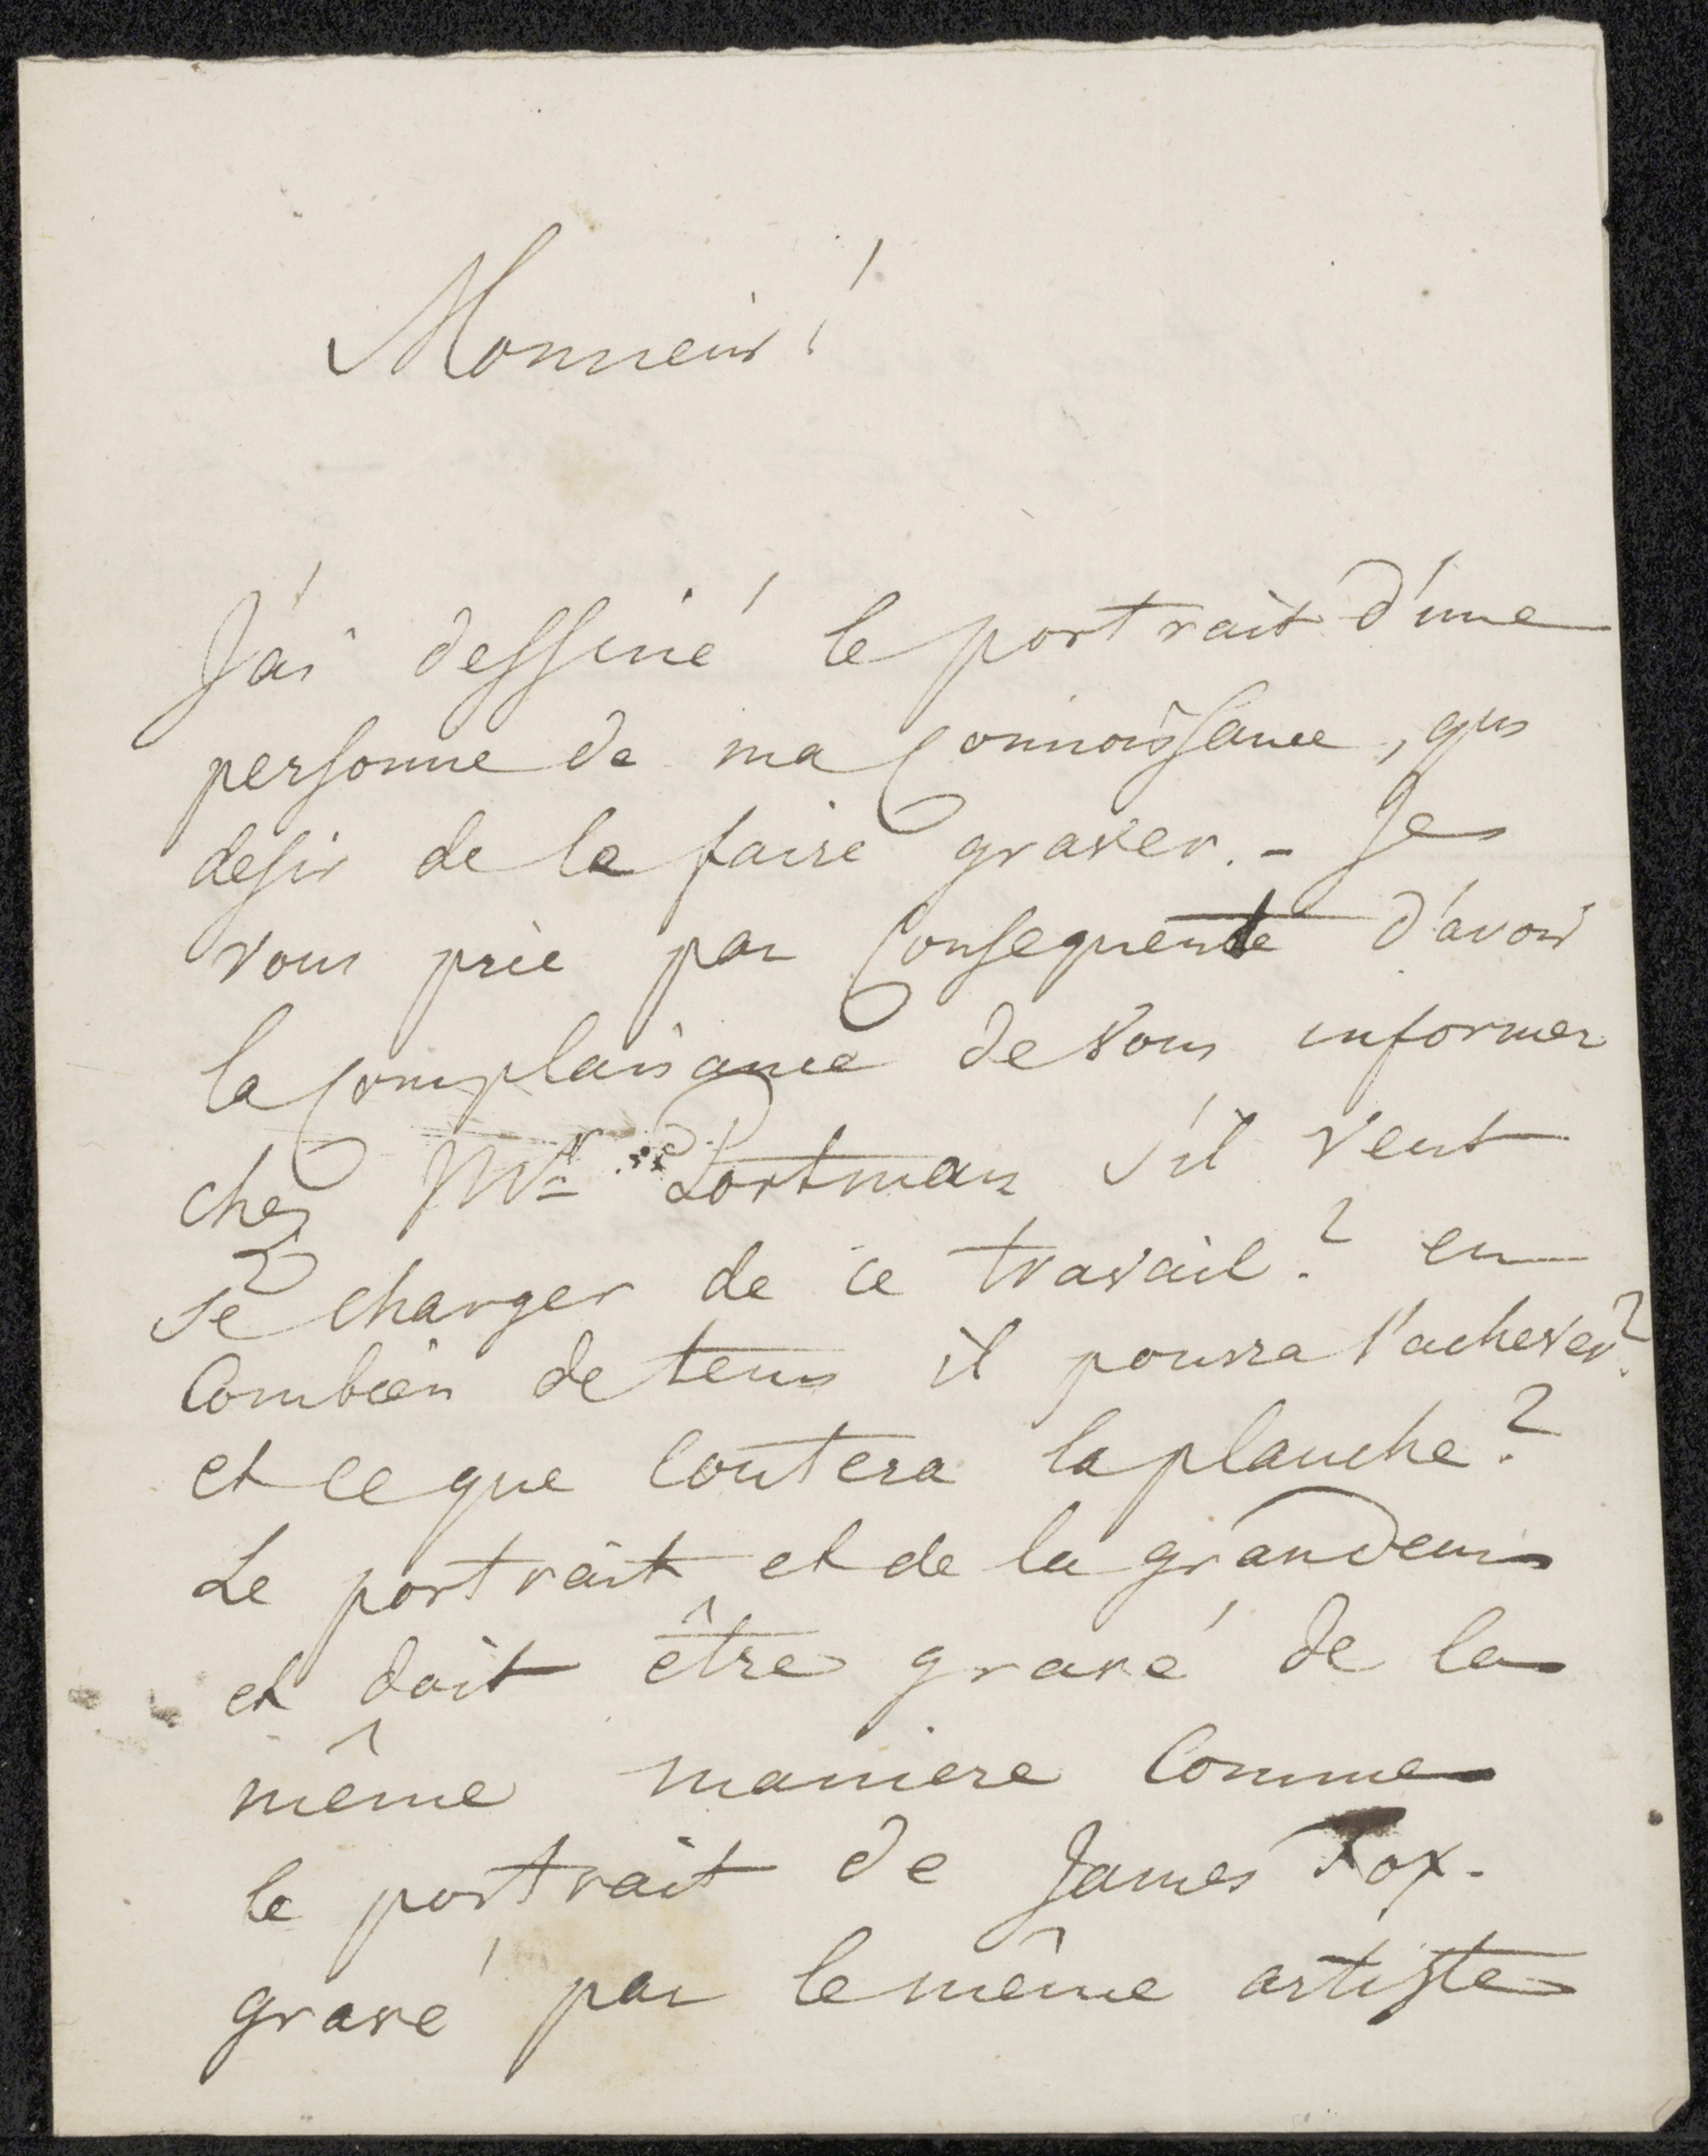 Monsieur!
J'ai dessiné le portrait d'une
personne de ma Connoissance, qui
desir de le faire graver. - Je
vous prie par Consequente d'avoir
la Complaisance de vous informer
chez Mr Portman s'il veut
se charger de ce travail? en
Combien de tems il pourra l'achever?
et ce que Coutera la planche?
Le portrait et de la grandeur
et doit être gravé de la
même maniere Comme
le portrait de James Fox.
gravé par le même artiste